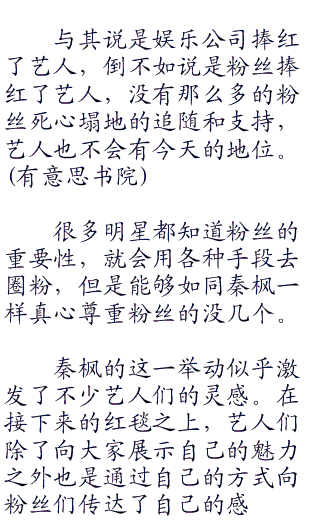 与其说是娱乐公司捧红
了艺人，倒不如说是粉丝捧
红了艺人，没有那么多的粉
丝死心塌地的追随和支持，
艺人也不会有今天的地位。
(有意思书院)
很多明星都知道粉丝的
重要性，就会用各种手段去
圈粉，但是能够如同秦枫一
样真心尊重粉丝的没几个。
秦枫的这一举动似乎激
发了不少艺人们的灵感。在
接下来的红毯之上，艺人们
除了向大家展示自己的魅力
之外也是通过自己的方式向
粉丝们传达了自己的感